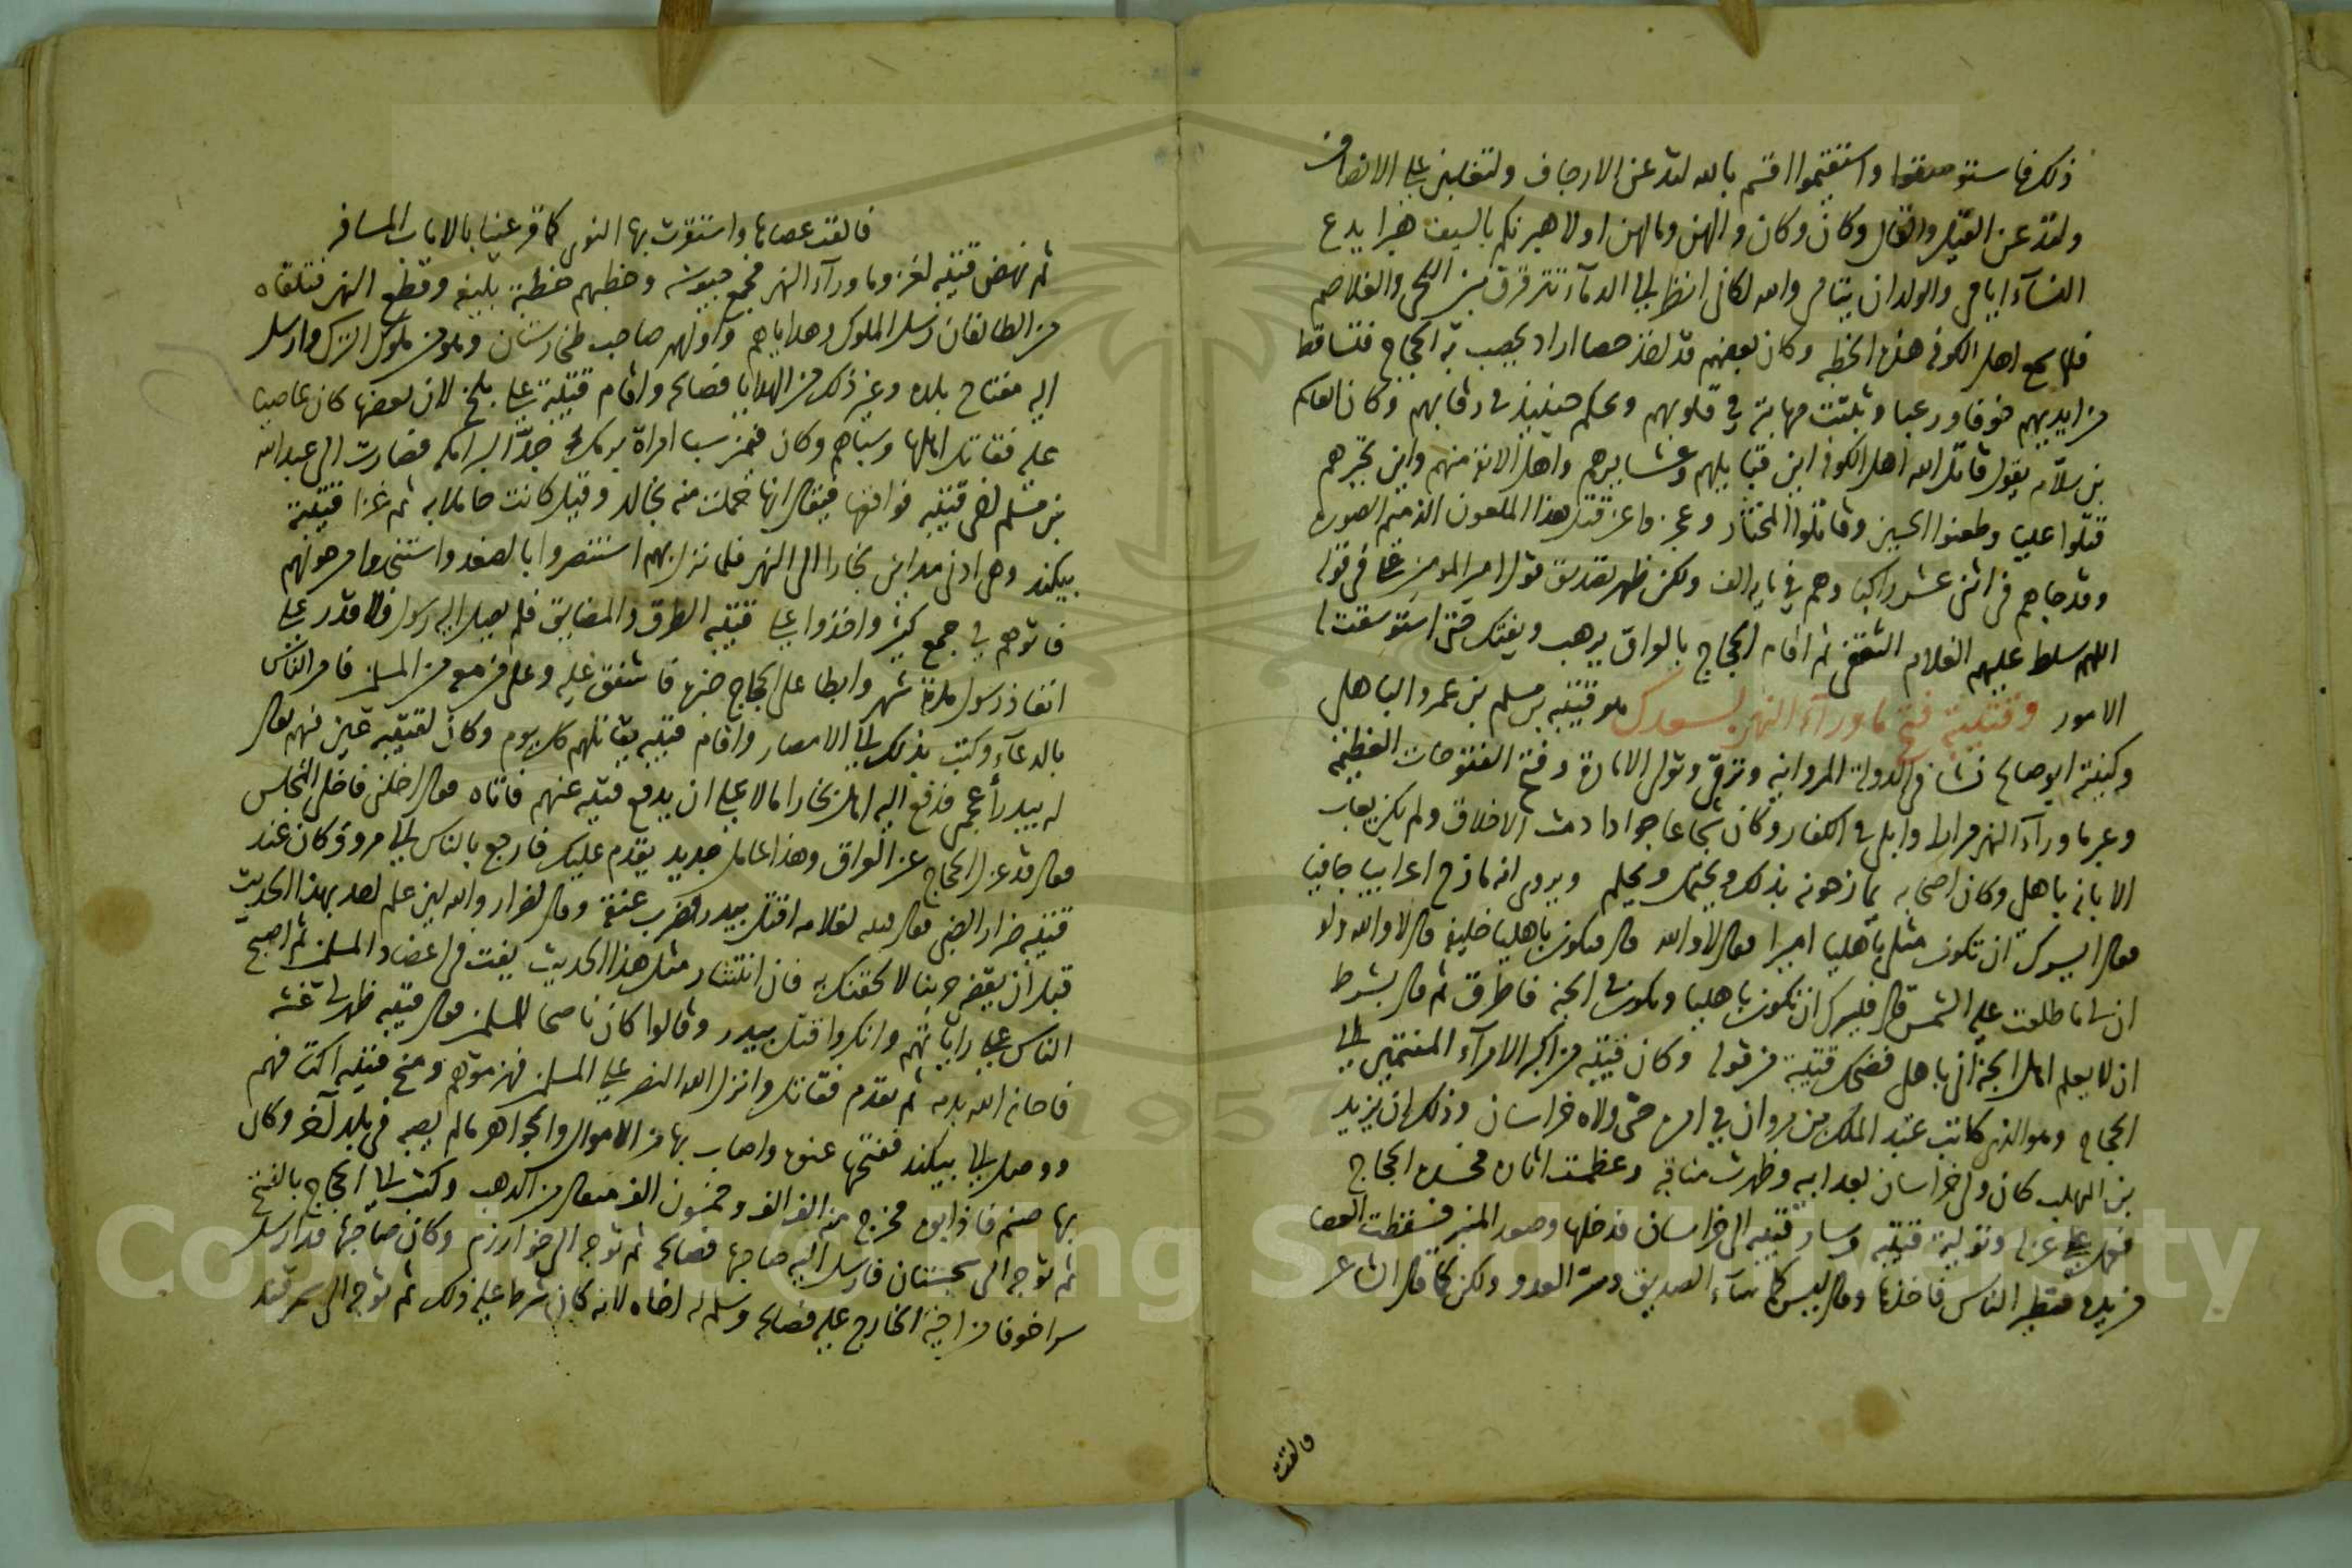 ذلك فاستوسقوا واستقيموا اقسم بالله لتدعن الارجاف ولتقبلن على الانصاف
ولتدعن القيل والقال وكان وكان والهن وما الهن او لاهبرنكم بالسيف هبرا يدع
النسآء ايامى والولدان يتامى والله لكانى انظر الى الدمآء تترقرق بين اللحى والغلاصم
فلما سمع اهل الكوفه هذه الخطبه وكان بعضهم قد اخذ حصا اراد يحصب به الحجاج فتساقط
من ايديهم خوفا ورعبا وثبتت مهابته في قلوبهم وحكم حينئذ فى رقابهم وكان
بن سلامه يقول قاتل الله اهل الكوفه اين قبايلهم وعشايرهم واهل الانفه منهم واين تجبرهم
قتلوا عليا وطعنوا الحسين وقاتلوا المختار وعجزوا عن قتل هذا الملعون الذميم الصوره
وقد جاهم فى اثنى عشر راكبا وهم في مايه الف ولكن ظهر تصديق قول امير المومنين على فى قوله
اللهم سلط عليهم الغلام الثقفى ثم اقام الحجاج بالعراق يرهب ويفتك حتى استوسقت له
الامور وقتيبة فتح ما ورآء النهر بسعدك هو قتيبه بن مسلم بن عمرو الباهلى
وكنيته ابو صالح نشا فى الدولة المروانيه وترقى وتولى الاماره وفتح الفتوحات العظيمه
وعبر ما ورآء النهر مرارا وابلى فى الكفار وكان شجاعا جوادا دمث الاخلاق ولم يكن يعاب
الا بانه باهلى وكان اصحابه يمازحونه بذلك ويحتمل ويحلم ويروى انه مازح اعرابيا جافيا
فقال ايسرك ان تكون مثلى باهليا اميرا فقال لا والله قال فتكون باهليا خليفه قال لا والله ولا
ان لى ما طلعت عليه الشمس قال فيسرك ان تكون باهليا وتكون فى الجنه فاطرق ثم قال بشرط
ان لا يعلم اهل الجنه انى باهلى فضحك قتيبة من قوله وكان قتيبه من اكبر الامرآء المنتمين الى
الحجاج وهو الذى كاتب عبد الملك بن مروان في امره حتى ولاه خراسان وذلك ان يزيد
بن المهلب كان ولى خراسان بعد ابيه وظهرت مناقبه وعظمت اثاره فحسده الحجاج
فعمل على عزله وتولية قتيبه وسار قتيبه الى خراسان فدخلها وصعد المنبر فسقطت العصا
من يده فتطير الناس فاخذها وقال ليس كما سآء الصديق وسر العدو ولكن كما قال الشاعر
فالقت
فالقت عصاها واستقرت بها النوى كما قر عينا بالاياب المسافر
ثم نهض قتيبه لغزو ما ورآء النهر فجمع جيوشه وخطبهم خطبة بليغه وقطع النهر فتلقاه
من الطالقان رسل الملوك وهداياهم واولهم صاحب طخارستان وهو من ملوك الترك وارسل
اليه مفتاح بلده وغير ذلك من الهدايا فصالحه واقام قتيبة على بلخ لان بعضها كان عاصيا
عليه فقاتل اهلها وسباهم وكان فيمن سبا امراة برمك جد البرامكه فصارت الى عبدالله
بن مسلم اخى قتيبه فواقعها فيقال انها حملت منه بخالد وقيل كانت حاملا به ثم غزا قتيبة
بيكند وهى ادنى مداين بخارا الى النهر فلما نزل بهم استنصروا بالصغد واستنجدوا من حولهم
فاتوهم في جمع كثير واخذوا على قتيبه الطرق والمضايق فلم يصل اليه رسول فلا قدر على
انفاذ رسول مدة شهر وابطا على الحجاج خبره فاشفق عليه وعلى من معه من المسلمين فامر الناس
بالدعآء وكتب بذلك الى الامصار واقام قتيبه يقاتلهم كل يوم وكان لقتيبه عين منهم يقال
له بيدر أعجمى فدفع اليه اهل بخارا مالا على ان يدفع قتيبه عنهم فاتاه فقال اخلنى فاخلى المجلس
فقال قد عزل الحجاج عن العراق وهذا عامل جديد يقدم عليك فارجع بالناس الى مرو وكان عند
قتيبه ضرار الضبى فقال قتيبه لغلامه اقتل بيدر فضرب عنقه وقال لضرار والله لين علم احد بهذا الحديث
قبل ان يقضى حربنا لالحقنك به فان انتشار مثل هذا الحديث يفت فى اعضاد المسلمين ثم اصبح
الناس على راياتهم وانكروا قتل بيدر وقالوا كان ناصحا للمسلمين فقال قتيبه ظهر لى غشه
فاحانه الله بذنبه ثم تقدم فقاتل وانزل الله النصر على المسلمين فهزموهم ومنح قتيبه اكتافهم
ووصل الى بيكند ففتحها عنوة واصاب بها من الاموال والجواهر ما لم يصبه فى بلد آخر وكان
بها صنم فاذابوه فخرج منه الف الف وخمسون الف مثقال من الذهب وكتب الى الحجاج بالفتح
ثم توجه الى سجستان فارسل اليه صاحبها فصالحه ثم توجه الى خوارزم وكان صاحبها قد ارسل
سرا خوفا من اخيه الخارج عليه فصالحه وسلم له اخاه لانه كان شرط عليه ذلك ثم توجه الى سمرقند
Copyright © King Saud University
1957